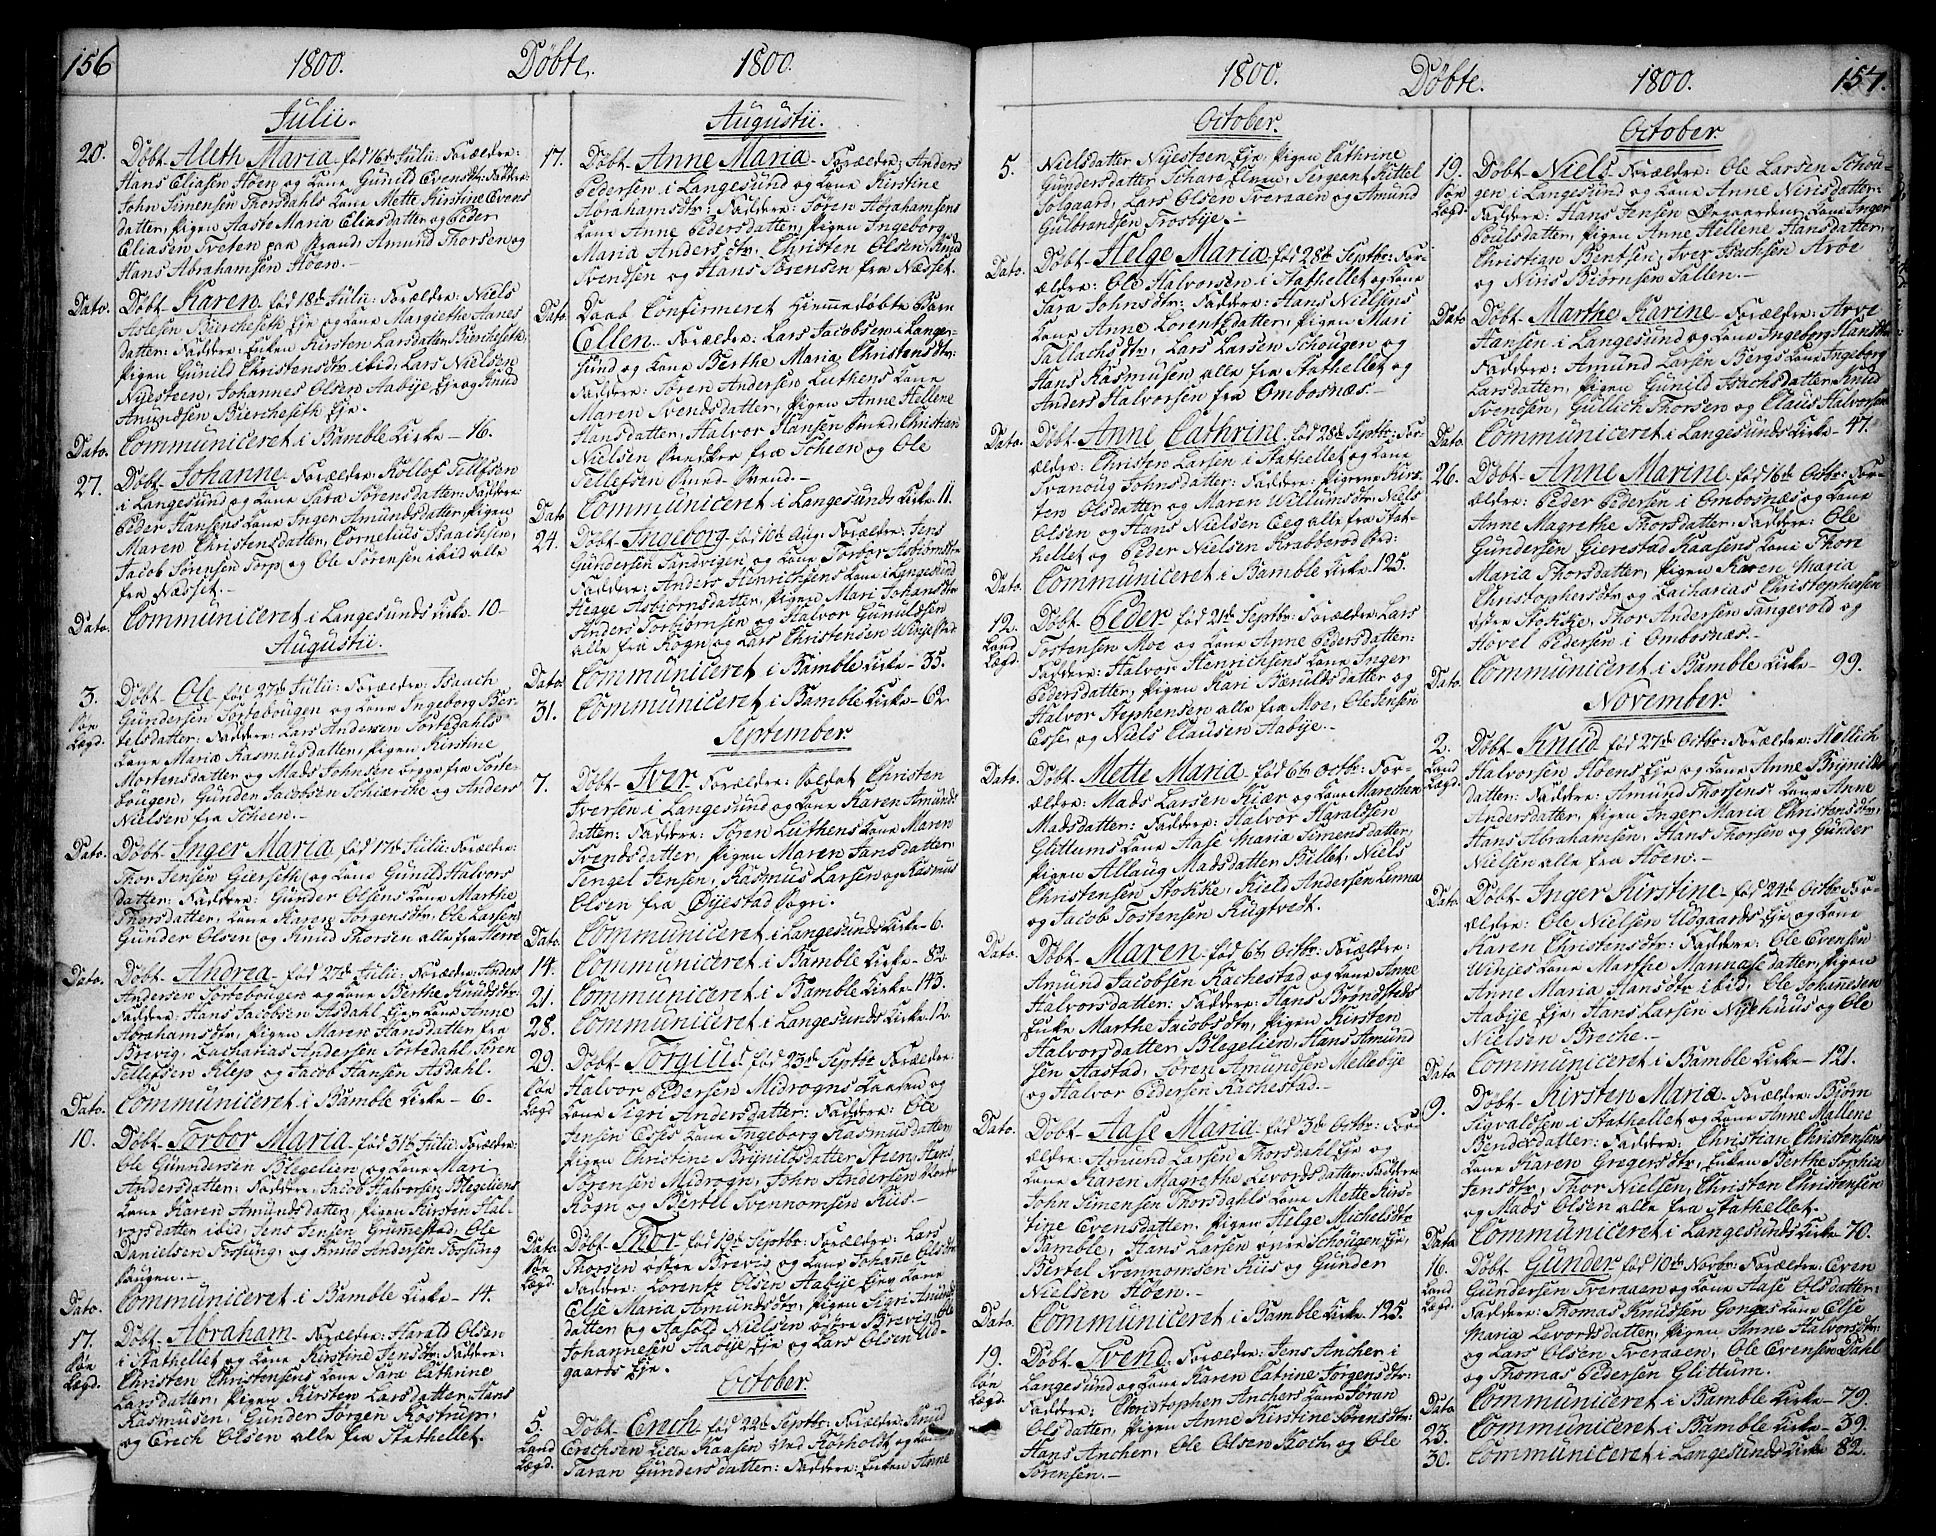 156 1800. Döbte. 1800.
Julii.
20. Döbt Aleth Maria, föd 16de Julii: Forældre:
Hans Eliasen Höen og Kone Gunild Evensdtr: Faddere:
John Simensen Thorsdahls Kone Mette Kirstine Evens
datter, Pigen Aaste Maria Eliasdatter og Peder
Eliasen Tveten paa Strand, Amund Thorsen og
Hans Abrahamsen Höen.-
Dato. Döbt Karen föd 18de Julii: Forældre: Niels
Bierkeseth Eje og Kone Margrethe Hanes
datter: Faddere: Enken Kirsten Larsdatter Bierkeseth
Pigen Gunild Christensdtr ibid, Lars Nielsen
Nyesteen, Johannes Olsen Aabije Eje og Knud
Amundsen Biercheseth Eje.
Dato. Communiceret i Bamble Kirke - 16.
27. Döbt Johanne - Forældre: Rollof Tellefsen
i Langesund og Kone Sara Sörensdatter: Faddere:
Peder Hansens Kone Inger Amundsdatter, Pigen
Maren Christensdatter, Cornelius Isaachsen,
Jacob Sörensen Torp og Ole Sörensen ibid alle
fra Næsset.-
Dato. Communiceret i Langesunds Kirke - 10 -
Augustii.
3. Döbt Ole föd 27de Julii: Forældre: Isaach
Söe Gundersen Tortebougen og Kone Ingeborg Ber-
Lægd. telsdatter: Faddere: Lars Andersen Tortedahls
Kone Maria Rasmusdatter, Pigen Kirstine
Mortensdatter og Mads Johnsen begge fra Torte-
bougen, Gunder Jacobsen Schierche og Anders
Nielsen fra Scheen.-
Dato. Döbt Inger Maria, föd 17de Julii: Forældre:
Thor Jensen Gierseth og Kone Gunild Halvors
datter: Faddere: Gunder Olsens Kone Marthe
Thorsdatter, Kone Karen Jörgensdtr, Ole Larsen
Gunder Olsen og Knud Thorsen alle fra Herre
Dato. Döbt Andrea - föd 27de Julii: Forældre: Anders
Andersen Tortebougen og Kone Berthe Knudsdtr:
Faddere: Hans Jacobsen Asdahl Eje, Kone Anne
Abrahamsdtr, Pigen Maren Hansdatter fra
Brevig, Zacharias Andersen Tortedahl, Sören
Tellefsen Klep og Jacob Hansen Asdahl.
Dato. Communiceret i Bamble Kirke - 6.
10. Döbt Torbor Maria - föd 31te Julii: Forældre:
Ole Gundersen Blegelien og Kone Mari
Andersdatter: Faddere: Jacob Halvorsen Blegeliens
Kone Karen Amundsdatter, Pigen Kirsten Hal-
vorsdatter ibid, Jens Jensen Grummestad, Ole
Danielsen Fossung, og Knud Andersen Fossung
Bougen.-
Dato. Communiceret i Bamble Kirke - 14.
17. Döbt Abraham - Forældre: Harald Olsen
Söe i Stathellet og Kone Kirstine Jensdtr: Faddere:
Lægd. Christen Christensens Kone Sara Cathrine
Larsdatter, Pigen Kirsten Larsdatter, Hans
Rasmusen, Gunder Jörgen Rostrup,
og Erech Olsen alle fra Stathellet.
Augustii.
17. Döbt Anne Maria - Forældre: Anders
Pedersen i Langesund og Kone Kirstine
Abrahamsdtr: Faddere: Sören Abrahamsens
Kone Anne Pedersdatter, Pigen Ingeborg
Maria Andersdtr, Christen Olsen, Knud
Svendsen og Hans Sörensen fra Næsset.
Dato. Daab Confirmeret Hiemmedöbte Barn
Ellen - Forældre: Lars Jacobsen i Lange-
sund og Kone Berthe Maria Christensdtr:
Faddere: Sören Andersen Luthens Kone
Maren Svendsdatter, Pigen Anne Hellene
Hansdatter, Halvor Hansen Smed, Christian
Nielsen Snedker fra Scheen og Ole
Tellefsen Smed Svend.-
Dato Communiceret i Langesunds Kirke 11.
24. Döbt Ingeborg föd 10de Aug: Forældre: Jens
Gundersen Sandvigen og Kone Torbor Asbiörnsdtr
Faddere: Anders Henrichsens Kone i Langesund
Hegge Asbiörnsdatter, Pigen Mari Johansdtr
Anders Torbiörnsen og Halvor Gunuldsen
alle fra Rogn og Lars Christensen Winje Stad
Dato. Communiceret i Bamble Kirke - 35.
31. Communiceret i Bamble Kirke - 62.
September
7. Döbt Iver Forældre: Soldat Christen
Iversen i Langesund og Kone Karen Amunds
datter: Faddere: Sören Luthens Kone Maren
Svendsdatter, Pigen Maren Jansdatter,
Tengel Jensen, Rasmus Larsen og Rasmus
Olsen fra Öyestad Sogn.
Dato. Communiceret i Langesunds Kirke - 6.
14. Communiceret i Bamble Kirke - 82.
21. Communiceret i Bamble Kirke - 143.
28. Communiceret i Langesunds Kirke - 12.
29. Döbt Torgius föd 23de Septbr Forældre:
Söe Halvor Pedersen Midrogns og
Lægd Kone Sigri Andersdatter: Faddere: Ole
Jensen Esses Kone Ingeborg Rasmusdatter,
Pigen Christine Brynildsdatter Stien, Hans
Sörensen Midrogn, John Andersen
Rogn og Bertel Svennomsen Riis.-
Dato Döbt Thor föd 19de Septbr: Forældre: Lars
Söe Thorsen östre Brevig og Kone Johane Olsdtr
Lægd. Faddere: Lorentz Olsen Aabije Eje, Kone
Else Maria Amundsdtr, Pigen Sigri Amunds
datter og Aasold Nielsen östre Brevig, Ole
Johannesen Aabije Eje og Lars Olsen Ud-
gaards Eje.
October
5. Döbt Erech föd 22de Septbr: Forældre Knud
Land Erechsen Lille Kaasen ved Rörholdt og Kone
Lægd. Taran Gundersdatter: Faddere: Enken Anne
1800. Döbte. 1800. 157.
October.
5. Nielsdatter Nyesteen Eje, Pigen Cathrine
Gundersdatter, Sergeant Kittel
Solgaard, Lars Olsen Tveraaen og Amund
Gulbrandsen Trosbije.-
Dato. Döbt Helge Maria, föd 28de Septbr: For-
ældre: Ole Halvorsen i Stathellet og Kone
Sara Johnsdtr: Faddere: Hans Nielsens
Kone Anne Lorentsdatter, Pigen Mari
Tallachsdtr, Lars Larsen Schougen og
Hans Rasmusen alle fra Stathellet og
Anders Halvorsen fra Ombosnæs.-
Dato. Döbt Anne Cathrine, föd 28de Septbr: For-
ældre: Christen Larsen i Stathellet og Kone
Svanoug Johnsdatter: Faddere: Pigerne Kirs-
ten Olsdatter og Maren Willumsdtr, Niels
Olsen og Hans Nielsen Eeg alle fra Stat-
hellet og Peder Nielsen Krabberöd
Dato. Communiceret i Bamble Kirke 125.
12. Döbt Peder föd 21de Septbr: Forældre: Lars
Land Tostensen Moe og Kone Anne Pedersdatter:
Lægd. Faddere: Halvor Henrichsens Kone Inger
Pedersdatter, Pigen Kari Bæruldsdatter og
Halvor Stephensen alle fra Moe, Ole Jensen
Esse, og Niels Clausen Aabije.-
Dato. Döbt Mette Maria - föd 6te Octbr: For-
ældre: Mads Larsen Kiær og Kone Marechen
Madsdatter: Faddere: Halvor Haraldsen
Glittums Kone Aase Maria Simensdatter,
Pigen Allaug Madsdatter Bullet, Niels
Christensen Stokke, Kield Andersen Linna
og Jacob Tostensen Rugtvedt.
Dato. Döbt Maren föd 6te Octbr: Forældre:
Amund Jacobsen Rachestad og Kone Anne
Halvorsdatter: Faddere: Hans Bröndsteds
Enke Marthe Jacobsdtr, Pigen Kirsten
Halvorsdatter Blegelien, Hans Amund
sen Hastad, Sören Amundsen Mellebije
og Halvor Pedersen Rachestad.-
Dato. Döbt Aase Maria - föd 3de Octbr: For-
ældre: Amund Larsen Thorsdahl Eje og
Kone Karen Magrethe Levordsdatter: Faddere
John Simensen Thorsdahls Kone Mette Kirs-
tine Evensdatter, Pigen Helge Michelsdtr
Bamble, Hans Larsen övre Schougen Eje,
Bertel Svennomsen Riis og Gunder
Nielsen Höen.-
Dato. Communiceret i Bamble Kirke - 125.
19. Döbt Svend. Forældre: Jens Ancher i
Söe Langesund og Kone Karen Catrine Jörgensdtr:
Lægd. Faddere: Christopher Anchers Kone Taran
Olsdatter, Pigen Anne Kirstine Sörensdtr:
Hans Ancher, Ole Olsen Koch, og Ole
Sörensen.-
October
19. Döbt Niels Forældre: Ole Larsen Schou-
Söe gen i Langesund og Kone Anne Nirisdatter:
Lægd. Faddere: Hans Jensen Öegaardens Kone Inger
Poulsdatter, Pigen Anne Hellene Hansdatter,
Christian Bentsen, Iver Isachsen Aröe
og Niris Biörnsen Salten.-
Dato Döbt Marthe Karine - Forældre: Arve
Hansen i Langesund og Kone Ingeborg Hansdtr:
Faddere: Amund Larsen Bergs Kone Ingeborg
Larsdatter, Pigen Gunild Isachsdatter, Knud
Svendsen, Gullich Thorsen og Claus Halvorsen
Dato. Communiceret i Langesunds Kirke - 47.
26. Döbt Anne Marine - föd 16de Octbr: For-
ældre: Peder Pedersen i Ombosnæs og Kone
Anne Magrethe Thorsdatter: Faddere: Ole
Gundersen Gierestad Kaasens Kone Thore
Maria Thorsdatter, Pigen Karen Maria
Christophersdtr og Zacharias Christophersen
östre Stokke, Thor Andersen Langevold og
Hovel Pedersen i Ombosnæs.-
Dato. Communiceret i Bamble Kirke - 99.
November.
2. Döbt Knud föd 27de Octbr: Forældre: Hellich
Land Halvorsen Höens Eje og Kone Anne Brynilds
Lægd. datter: Faddere: Amund Thorsens Kone Anne
Andersdatter, Pigen Inger Maria Christensdtr,
Hans Abrahamsen, Hans Thorsen og Gunder
Nielsen alle fra Höen.-
Dato. Döbt Inger Kirstine - föd 24de Octbr: For-
ældre: Ole Nielsen Udgaards Eje og Kone
Karen Christensdtr: Faddere: Ole Evensen
Winjes Kone Marthe Mannasedatter, Pigen
Anne Maria Hansdtr ibid, Ole Johanesen
Aabije Eje, Hans Larsen Nyehuus og Ole
Nielsen Breche.-
Dato Communiceret i Bamble Kirke - 121.
9. Döbt Kirsten Maria - Forældre: Biörn
Sigvaldsen i Stathellet og Kone Anne Mallene
Bendesdatter: Faddere: Christian Christensens
Kone Karen Gregersdtr, Enken Berthe Sophia
Jensdtr, Thor Nielsen, Christen Christensen
og Mads Olsen alle fra Stathellet.
Dato. Communiceret i Langesunds Kirke - 70.
16. Döbt Gunder föd 10de Novbr: Forældre: Even
Land Gundersen Tveraaen og Kone Aase Olsdatter:
Lægd. Faddere: Thomas Knudsen Gonges Kone Else
Maria Levordsdatter, Pigen Anne Halvorsdtr
og Lars Olsen Tveraaen, Ole Evensen Dahl
og Thomas Pedersen Glittum.
Dato Communiceret i Bamble Kirke - 79.
23. Communiceret i Bamble Kirke - 39.
30. Communiceret i Langesunds Kirke 82.